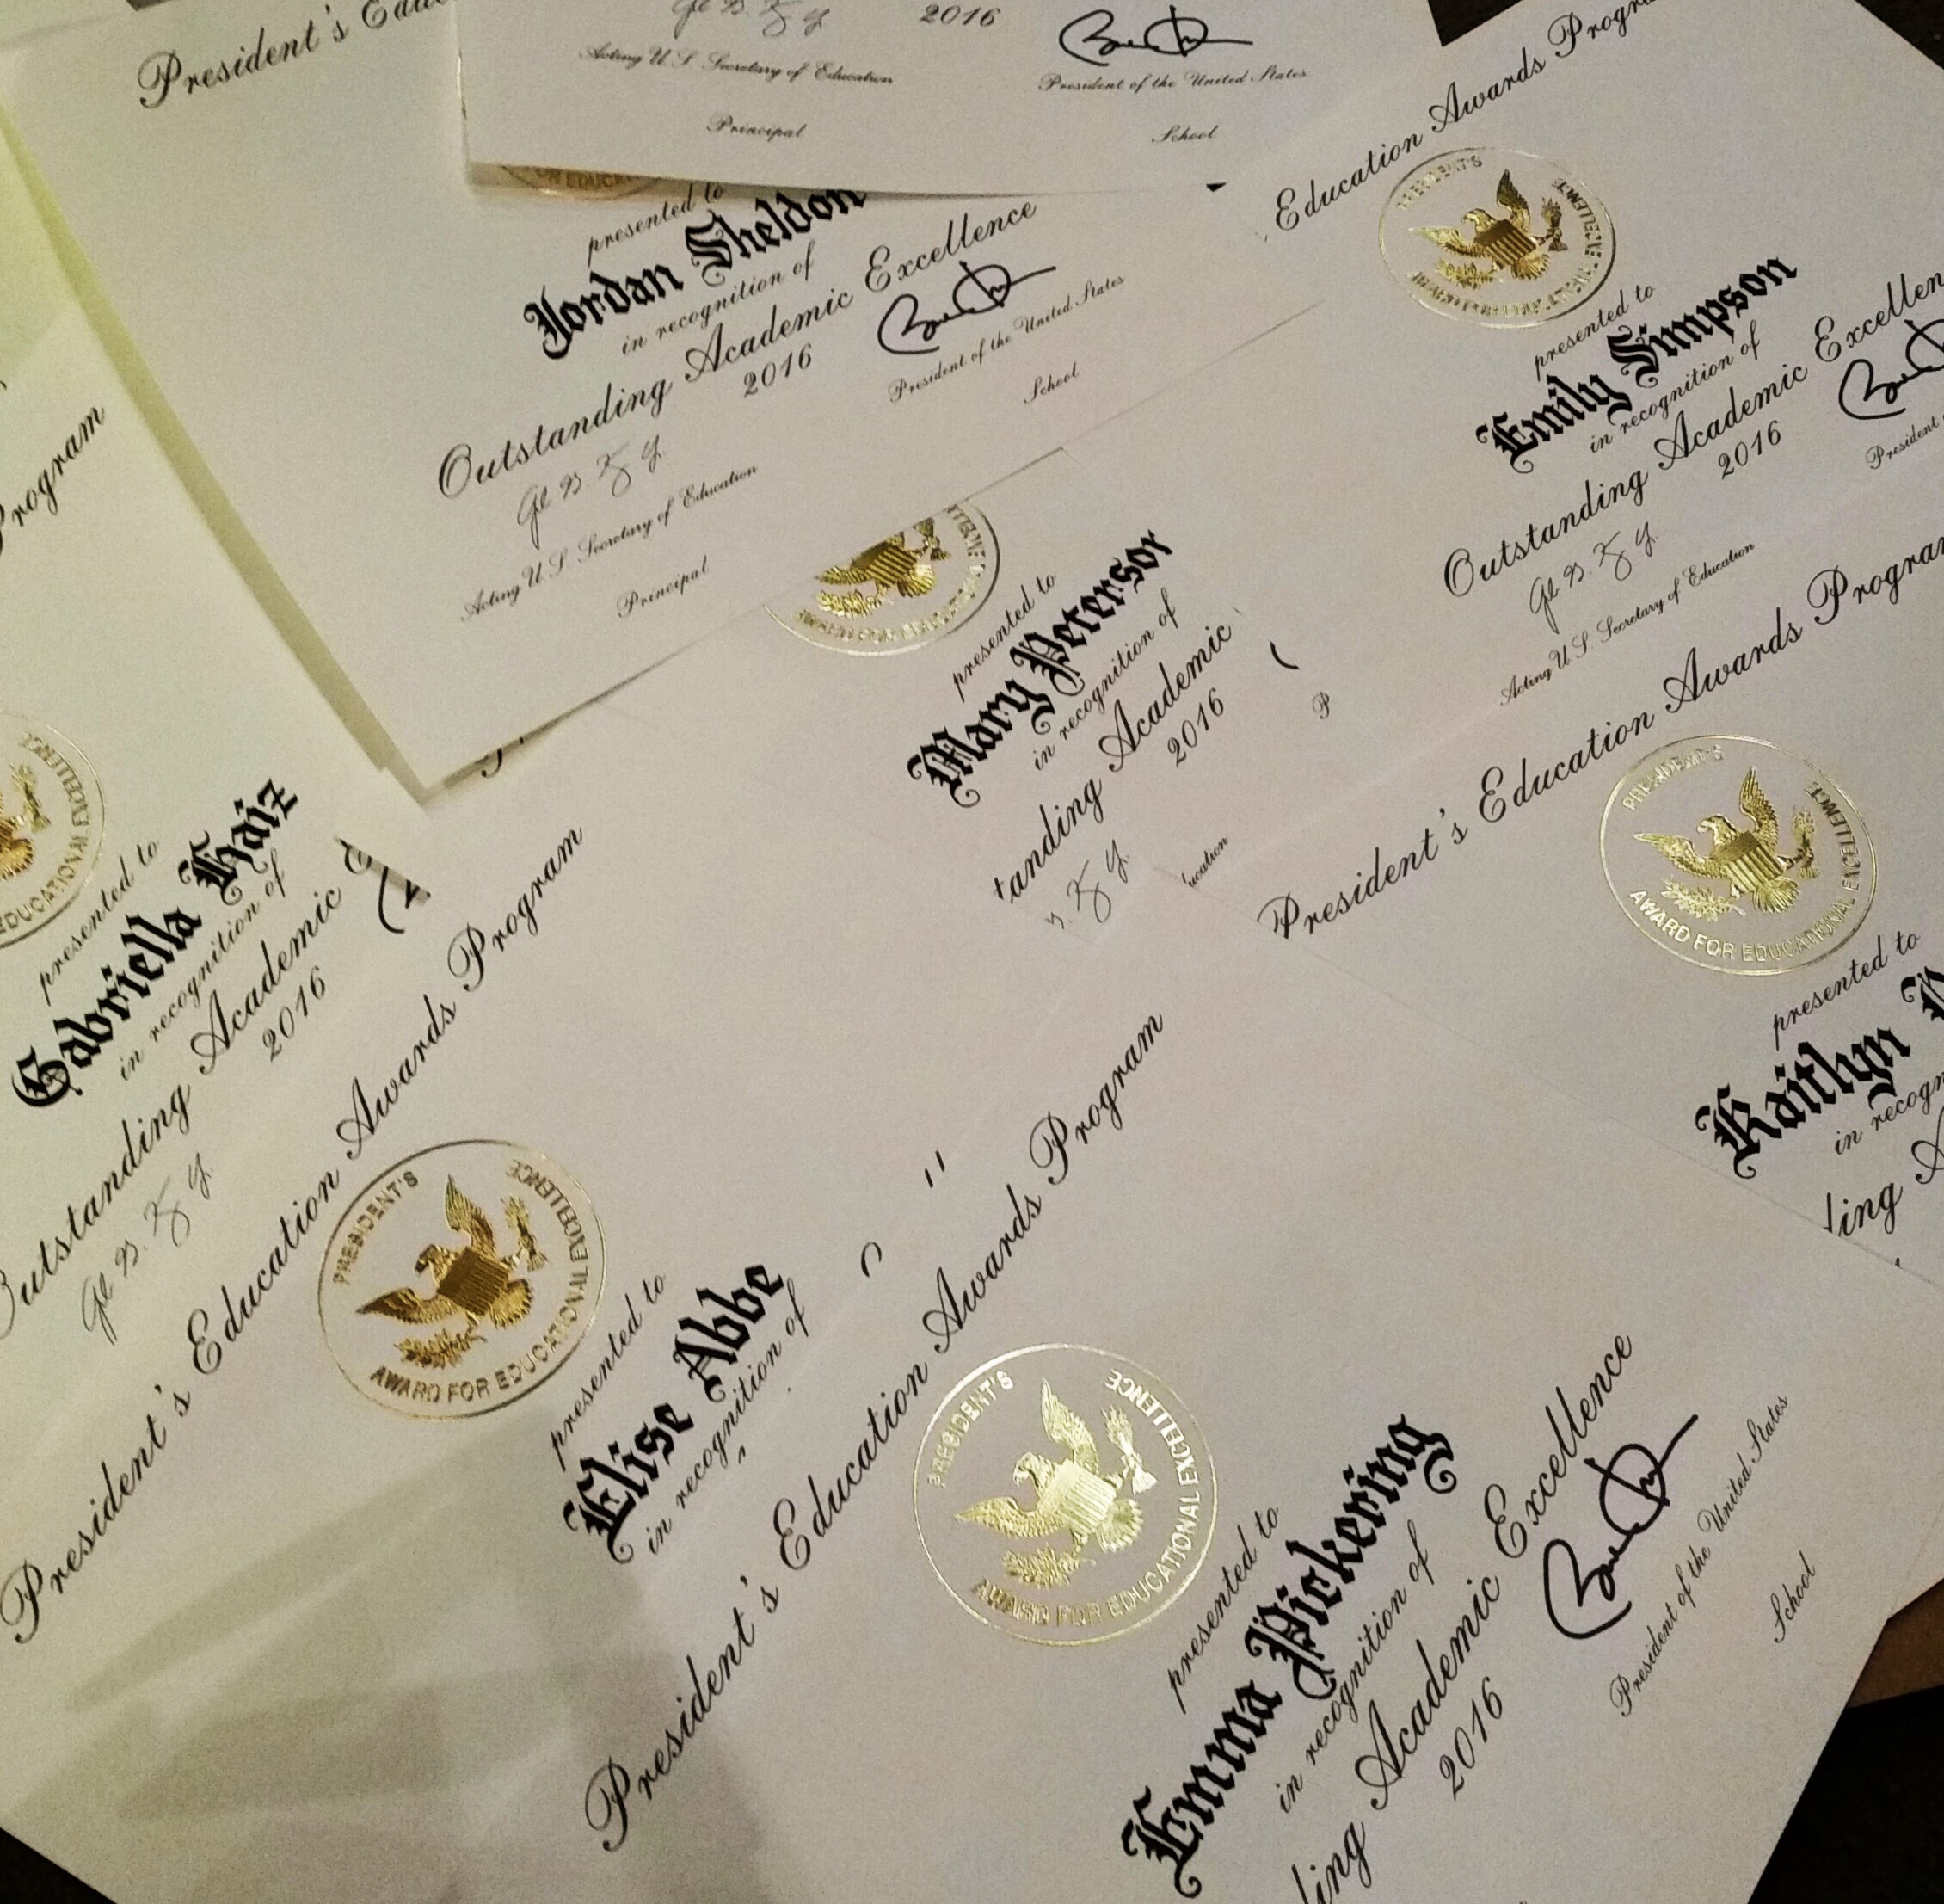 President's
2016
Acting U.S. Secretary of Education
President of the United States
Principal
School
presented to
Jordan Sheldon
in recognition of
Outstanding Academic Excellence
2016
Acting U.S. Secretary of Education
President of the United States
Principal
School
Education Awards
PRESIDENT'S
AWARD FOR EDUCATIONAL EXCELLENCE
presented to
Emily Simpson
in recognition of
Outstanding Academic
2016
Acting U.S. Secretary of Education
President
Program
EDUCATIONAL EXCELLENCE
presented to
Gabriella Haiz
in recognition of
Outstanding Academic
2016
AWARD FOR EDUCATIONAL
presented to
Mary Peterson
in recognition of
tanding Academic
2016
ucation
President's Education Awards Program
PRESIDENT'S
AWARD FOR EDUCATIONAL EXCELLENCE
presented to
Kaitlyn
in
ling
President's Education Awards Program
PRESIDENT'S
AWARD FOR EDUCATIONAL EXCELLENCE
presented to
Elise Abbe
in recognition of
President's Education Awards Program
PRESIDENT'S
AWARD FOR EDUCATIONAL EXCELLENCE
presented to
Emma Pickering
in recognition of
ling Academic Excellence
2016
President of the United States
School